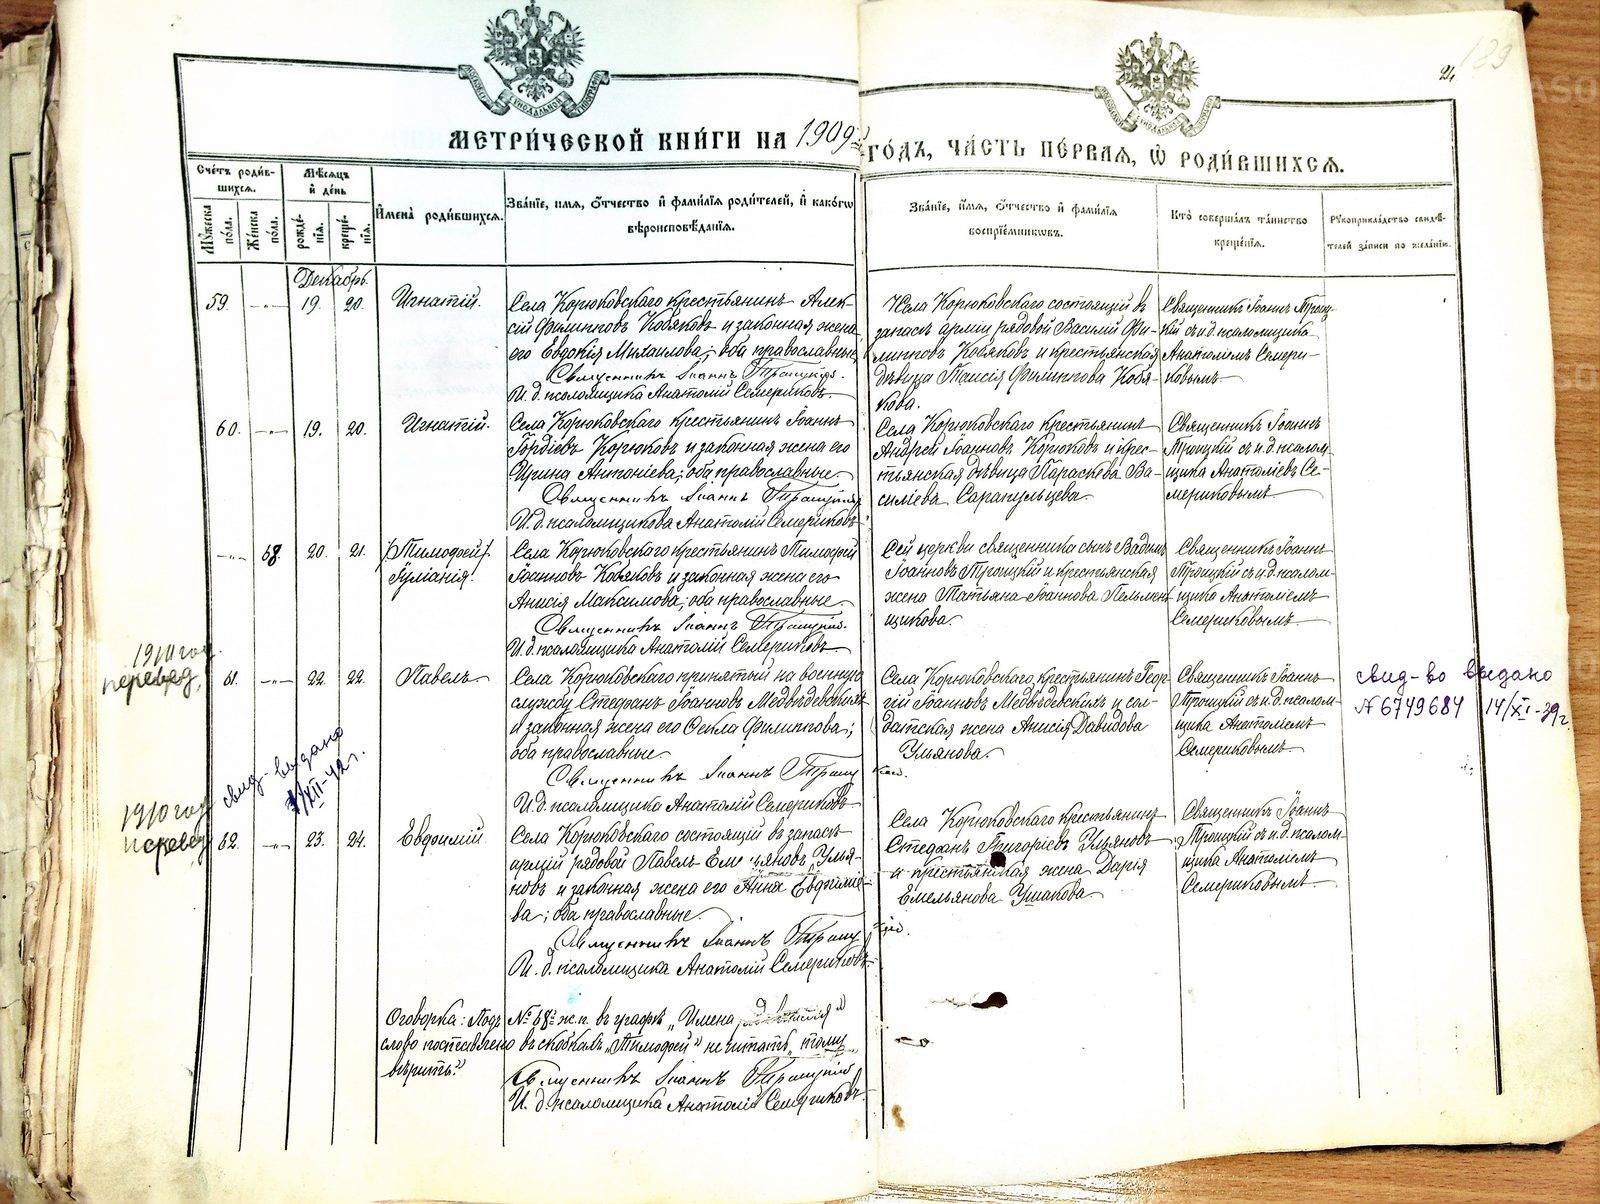 24
189
МЕТРИ́ЧЕСКОЙ КНИ́ГИ НА 1909 й ГО́ДЪ, ЧА́СТЬ ПЕ́РВАЯ, Ѡ РОДИ́ВШИХСЯ.
Сче́тъ роди́в-
шихся.
Му́жеска
по́ла.
Же́нска
по́ла.
Мѣ́сяцъ
и де́нь
рожде́-
нія.
креще́-
нія.
И́мена̀ роди́вшихся.
Зва́ніе, и́мя, о́тчество и фами́лія роди́телей, и како́гѡ
вѣроисповѣ́данія.
Зва́ніе, и́мя, о́тчество и фами́лія
воспріе́мникѡвъ.
Кто̀ соверша́лъ та́инство
креще́нія.
Рꙋкоприкла́дство свидѣ́-
телей за́писи по жела́нію.
Декабрь.
59. -„- 19. 20. Игнатій.
Села Корюковскаго крестьянинъ Алек-
сій Филипповъ Кобяковъ и законная жена
его Евдокія Михаилова; оба православные
Священникъ Іоаннъ Троицкій.
И. д. псаломщика Анатолій Семериковъ.
Села Корюковскаго состоящій въ
запасѣ арміи рядовой Василій Фи-
липповъ Кобяковъ и крестьянская
дѣвица Таисія Филиппова Кобя-
кова.
Священникъ Іоаннъ Троиц-
кій съ и. д. псаломщика
Анатоліемъ Семери-
ковымъ
60. -„- 19. 20. Игнатій.
Села Корюковскаго крестьянинъ Іоаннъ
Гордіевъ Корюковъ и законная жена его
Ирина Антоніева; оба православные
Священникъ Іоаннъ Троицкій
И. д. псаломщикова Анатолій Семериковъ
Села Корюковскаго крестьянинъ
Андрей Іоанновъ Корюковъ и крес-
тьянская дѣвица Параскева Ва-
силіева Сарапульцева.
Священникъ Іоаннъ
Троицкій съ и. д. псалом-
щика Анатоліевъ Се-
мериковымъ
-„- 68 20. 21. (Тимофей)
Іуліанія.
Села Корюковскаго крестьянинъ Тимофей
Іоанновъ Кобяковъ и законная жена его
Анисія Максимова; оба православные
Священникъ Іоаннъ Троицкій.
И. д. псаломщика Анатолій Семериковъ
Сей церкви священника сынъ Вадимъ
Іоанновъ Троицкій и крестьянская
жена Татьяна Іоаннова Пельмен-
щикова
Священникъ Іоаннъ
Троицкій съ и. д. псалом-
щика Анатоліемъ
Семериковымъ
1910 год
перевед.
61. -„- 22. 22. Павелъ
Села Корюковскаго принятый на военную
службу Стефанъ Іоанновъ Медвѣдевскихъ
и законная жена его Фекла Филиппова;
оба православные
Священникъ Іоаннъ Троицкій.
И. д. псаломщика Анатолій Семериковъ
Села Корюковскаго крестьянинъ Геор-
гій Іоанновъ Медвѣдевскихъ и сол-
датская жена Анисія Давидова
Ульянова.
Священникъ Іоаннъ
Троицкій съ и. д. псалом-
щика Анатоліемъ
Семериковымъ
свид-во выдано
№ 6749684 14/XI-39 г.
свид- выдано
/XII-42 г.
1910 год
перевед
62. -„- 23. 24. Евфимій.
Села Корюковскаго состоящій въ запасѣ
армій рядовой Павелъ Емельяновъ Улья-
новъ и законная жена его Анна Евфиміе-
ва; оба православные
Священникъ Іоаннъ Троицкій.
И. д. псаломщика Анатолій Семериковъ
Села Корюковскаго крестьянинъ
Стефанъ Григоріевъ Ульяновъ
и крестьянская жена Дарія
Емельянова Ушакова.
Священникъ Іоаннъ
Троицкій съ и. д. псалом-
щика Анатоліемъ
Семериковымъ
Оговорка: Подъ № 68 ж. п. въ графѣ „Имена
слово поставлено въ скобкахъ „Тимофей" не читать, тому
вѣрить."
Священникъ Іоаннъ Троицкій
И. д. псаломщика Анатолій Семериковъ